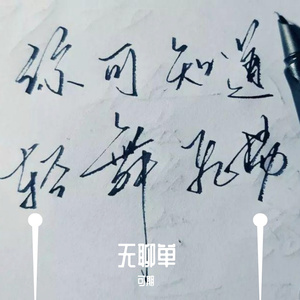 你可知道
轻舞飞扬
无聊单